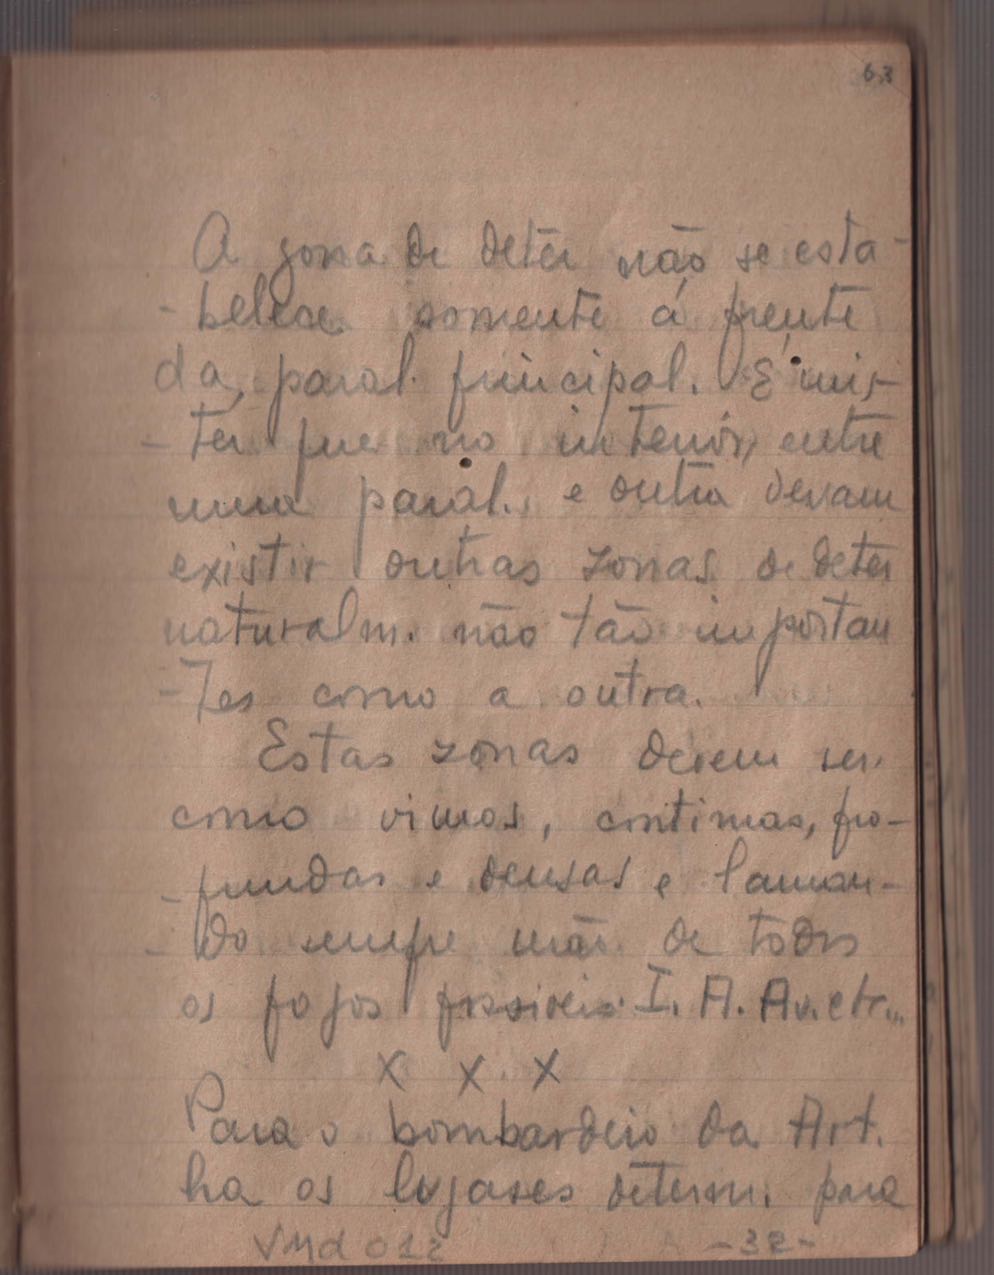 63
A zona de deter não se esta-
-belece somente á frente
da paral. principal. É mis-
-ter que no interior, entre
uma paral. e outra devam
existir outras zonas de deter
naturalm. não tão importan
-tes como a outra.
Estas zonas devem ser,
como vimos, continuas, pro-
-fundas e densas e lançan-
-do sempre mão de todos
os fogos possiveis: I. A. Av. etc...
X X X
Para o bombardeio da Art.
ha os lugares determ. para
VMd 012 -32-